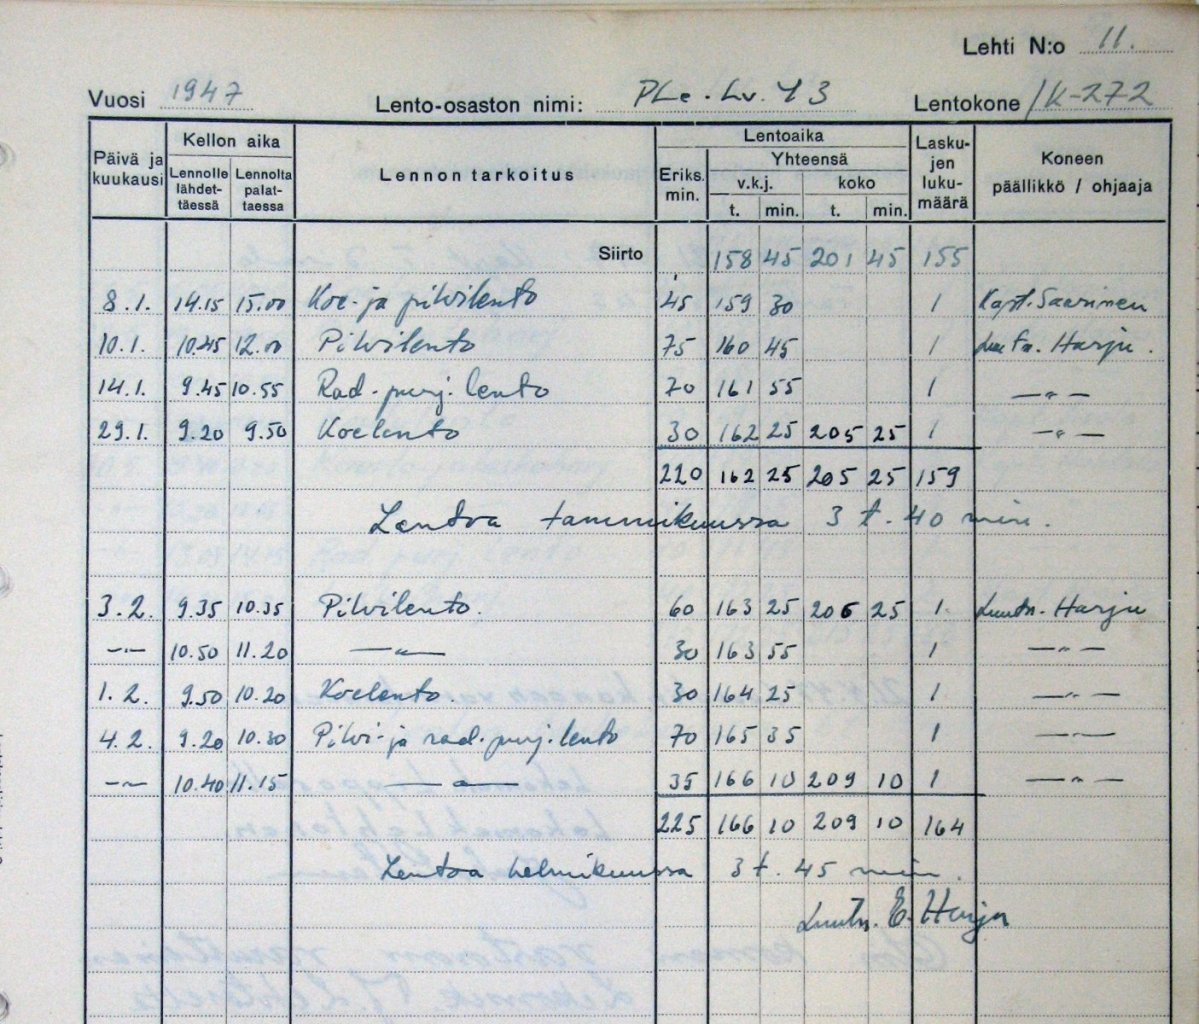 Lehti N:o 11.
Vuosi 1947 Lento-osaston nimi: PLe.Lv.43 Lentokone IK-272
Päivä ja kuukausi Kellon aika Lennolle lähdet-täessä Lennolta palat-taessa Lennon tarkoitus Lentoaika Eriks. min. Yhteensä v.k.j. t. min. koko t. min. Lasku-jen luku-määrä Koneen päällikkö / ohjaaja
Siirto 158 45 201 45 155
8.1. 14.15 15.00 Koe- ja pilvilento 45 159 30 1 Kapt. Saarinen
10.1. 10.45 12.00 Pilvilento 75 160 45 1 Luutn. Harju.
14.1. 9.45 10.55 Rad.-purj. lento 70 161 55 1 —"—
29.1. 9.20 9.50 Koelento 30 162 25 205 25 1 —"—
220 162 25 205 25 159
Lentoa tammikuussa 3 t. 40 min.
3.2. 9.35 10.35 Pilvilento. 60 163 25 206 25 1. Luutn. Harju
—"— 10.50 11.20 —"— 30 163 55 1 —"—
1.2. 9.50 10.20 Koelento 30 164 25 1 —"—
4.2. 9.20 10.30 Pilvi- ja rad.-purj. lento 70 165 35 1 —"—
—"— 10.40 11.15 —"— 35 166 10 209 10 1 —"—
225 166 10 209 10 164
Lentoa helmikuussa 3 t. 45 min.
Luutn. E. Harju